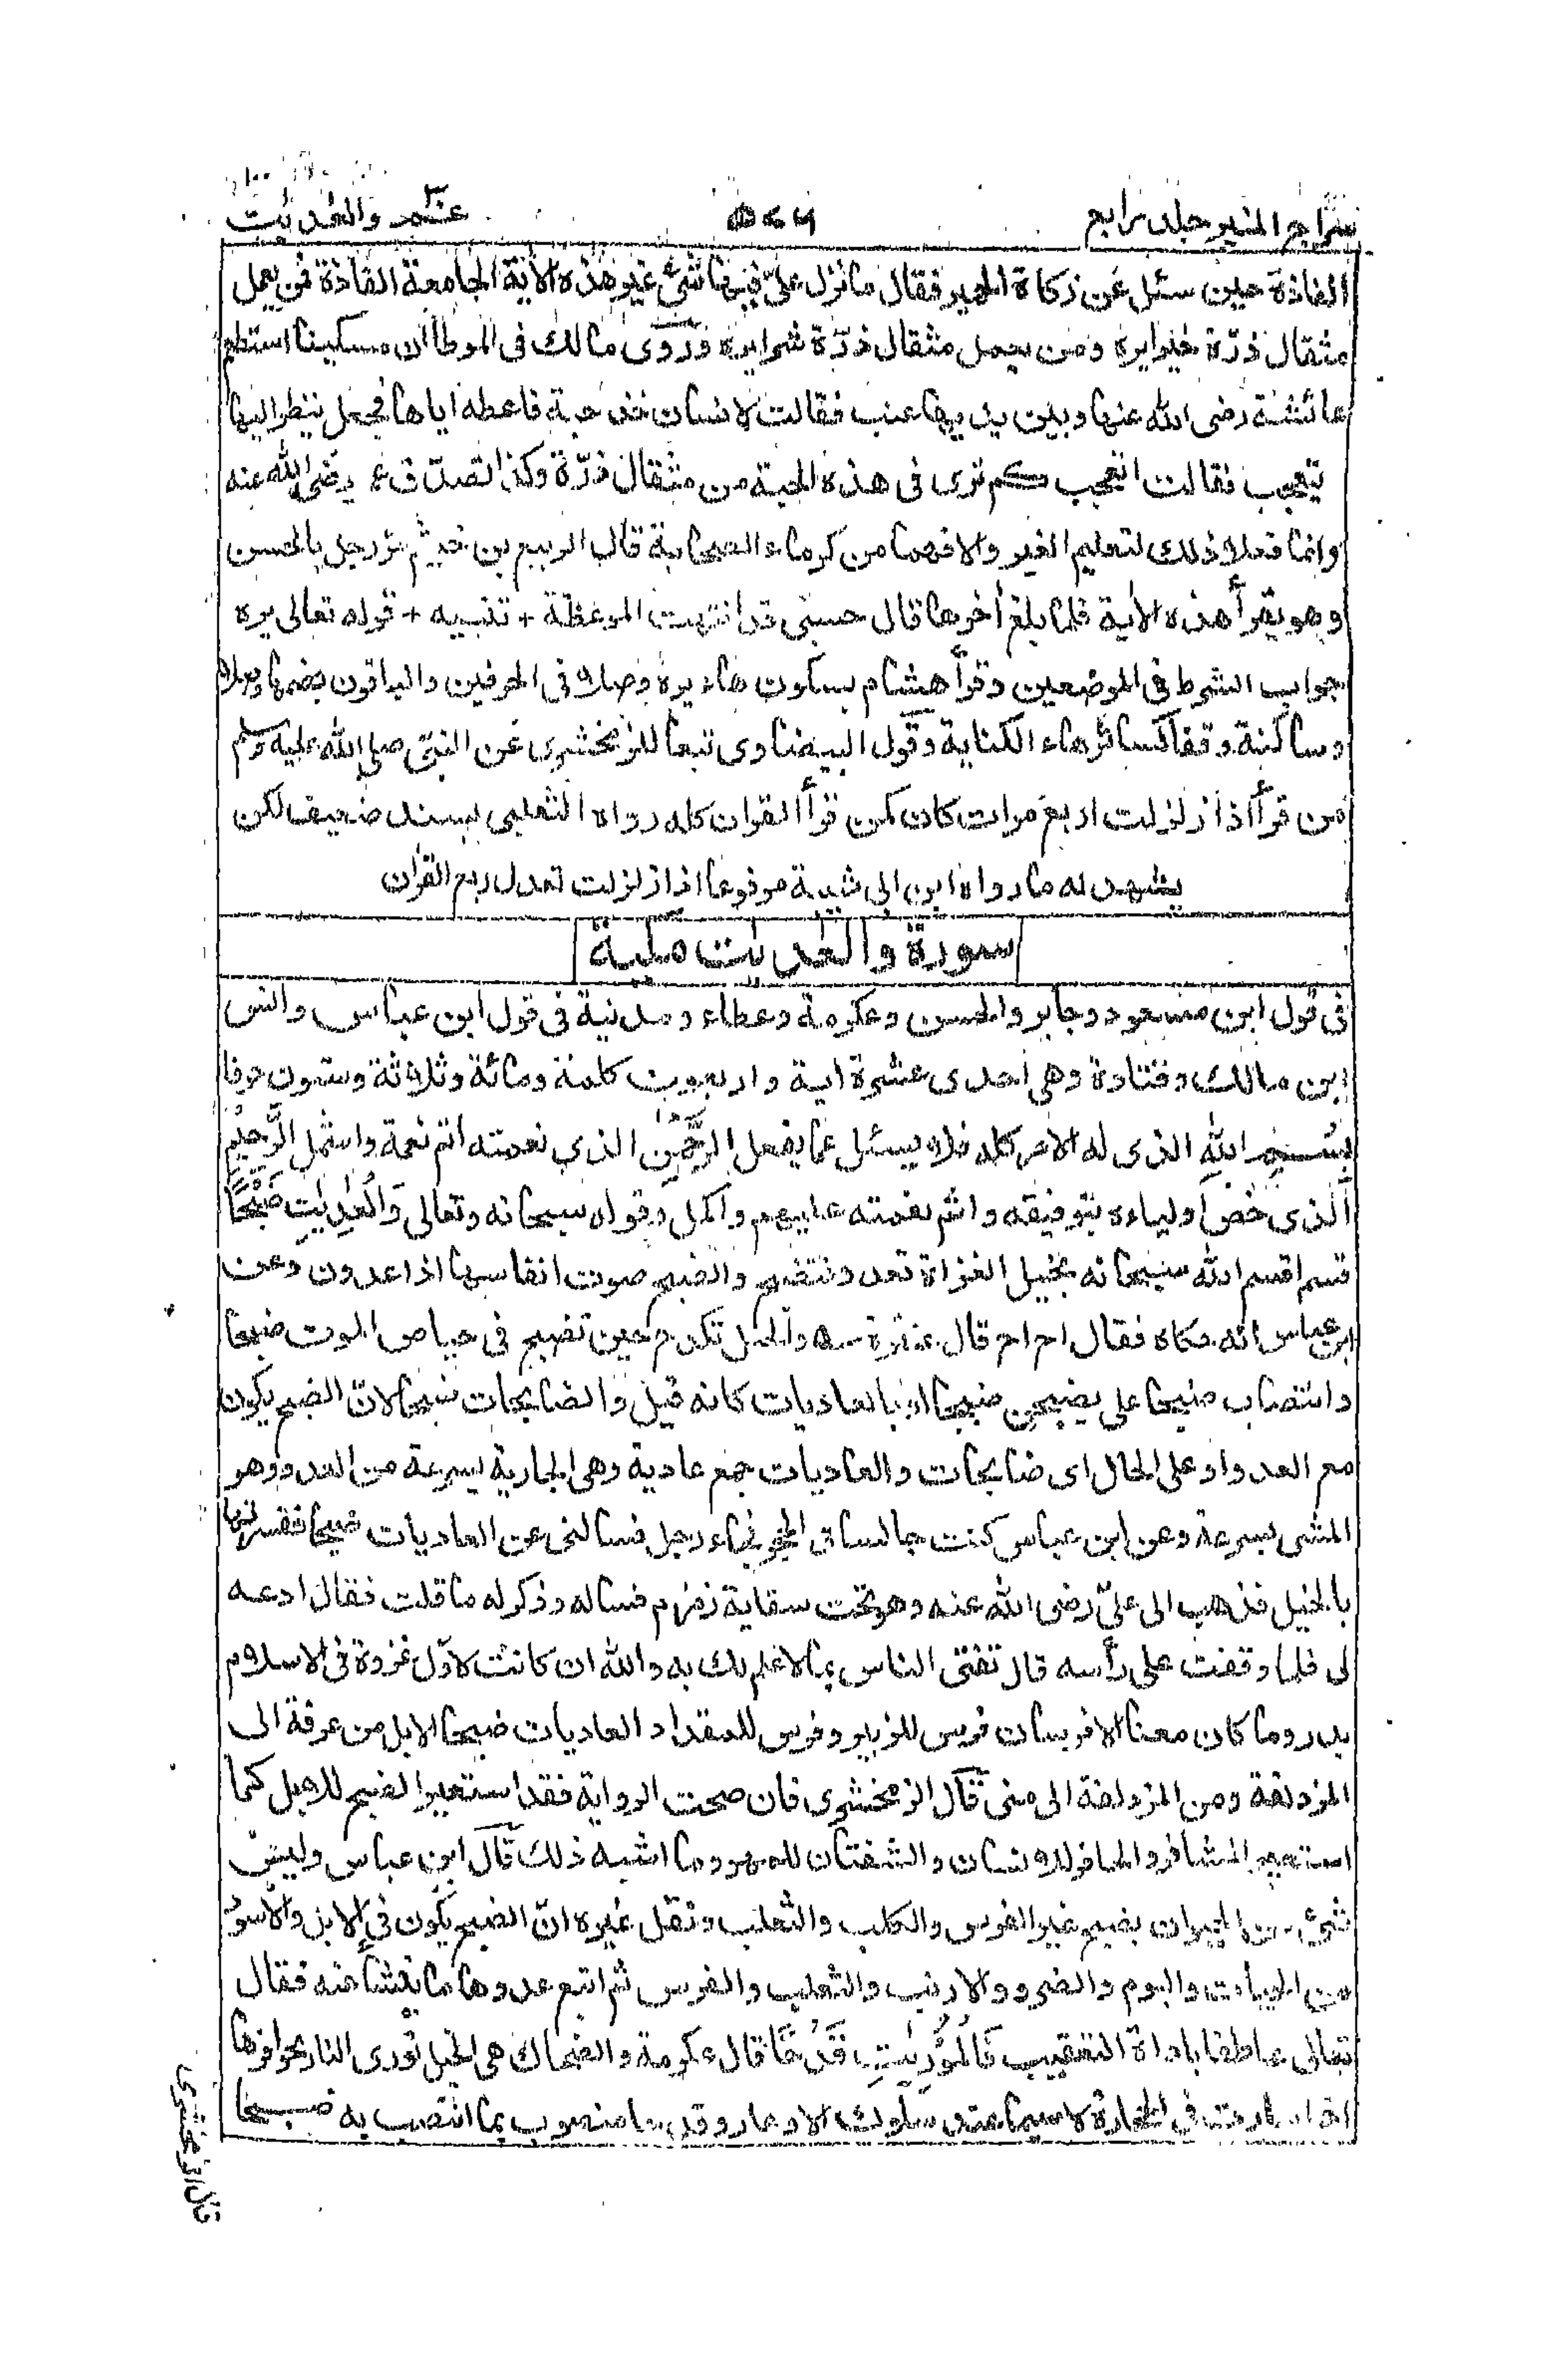 سراج المنير جلد رابع
عم والعديت
الفاذة حين سئل عن زكاة الحمير فقال ما نزل علىّ فيها شئ غير هذه الأية الجامعة الفاذة فمن يعمل
مثقال ذرّة خيرا يره ومن يعمل مثقال ذرّة شرا يره وروى مالك فى الموطا ان مسكينا استطعم
عائشة رضى الله عنها وبين يديها عنب فقالت لانسان خذ حبة فاعطه اياها فجعل ينظر اليها
يتعجب فقالت اتعجب كم ترى فى هذه الحبة من مثقال ذرّة وكذا تصدّق عمر رضى الله عنه
وانما فعلا ذلك لتعليم الغير والا فهما من كرماء الصحابة قال الربيع بن خيثم مرّ رجل بالحسن
وهو يقرأ هذه الأية فلما بلغ أخرها قال حسبى قد انتهت الموعظة + تنبيه + قوله تعالى يره
جواب الشرط فى الموضعين وقرأ هشام بسكون هاء يره وصلا فى الحرفين والباقون بضمها وصلا
وساكنة وقفا كسائر هاء الكناية وقول البيضاوى تبعا للزمخشرى عن النبىّ صلى الله عليه وسلم
من قرأ اذا زلزلت اربع مرات كان كمن قرأ القران كله رواه الثعلبى بسند ضعيف لكن
يشهد له ما رواه ابن ابى شيبة مرفوعا اذا زلزلت تعدل ربع القران
سورة والعديت مكية
فى قول ابن مسعود وجابر والحسن وعكرمة وعطاء ومدنية فى قول ابن عباس وانس
ابن مالك وقتادة وهى احدى عشرة اية واربعون كلمة ومائة وثلاثة وستون حرفا
بسم الله الذى له الامر كله فلا يسئل عما يفعل الرحمن الذى نعمته اتم نعمة واشمل الرحيم
الذى خص اولياءه بتوفيقه واتم نعمته عليهم واكمل وقوله سبحانه وتعالى وَالْعٰدِيٰتِ ضَبْحًا
قسم اقسم الله سبحانه بخيل الغزاة تعدو فتضبح والضبح صوت انفاسها اذا عدون وعن
ابن عباس انه حكاه فقال اح اح قال عنترة والخيل تكدح حين تضبح فى حياض الموت ضبحا
وانتصاب ضبحا على يضبحن ضبحا او بالعاديات كانه قيل والضابحات ضبحا لانّ الضبح يكون
مع العدو او على الحال اى ضابحات والعاديات جمع عادية وهى الجارية بسرعة من العدو وهو
المشى بسرعة وعن ابن عباس كنت جالسا فى الحجر فجاء رجل فسالنى عن العاديات ضبحا ففسرتها
بالخيل فذهب الى علىّ رضى الله عنه وهو تحت سقاية زمزم فساله وذكر له ما قلت فقال ادعه
لى فلما وقفت على رأسه قال تفتى الناس بما لا علم لك به والله ان كانت لاوّل غزوة فى الاسلام
بدر وما كان معنا الا فرسان فرس للزبير وفرس للمقداد العاديات ضبحا الابل من عرفة الى
المزدلفة ومن المزدلفة الى منى قال الزمخشرى فان صحت الرواية فقد استعير الضبح للابل كما
استعير المشافر والحافر للانسان والشفتان للمهر وما اشبه ذلك قال ابن عباس وليس
شئ من الحيوان يضبح غير الفرس والكلب والثعلب ونقل غيره انّ الضبح يكون فى الابل والاسود
من الحيات والبوم والضرو والارنب والثعلب والفرس ثم اتبع عدوها ما ينشأ عنه فقال
تعالى عاطفا باداة التعقيب فَالْمُوْرِيٰتِ قَدْحًا قال عكرمة والضحاك هى الخيل تورى النار بحوافرها
اذا سارت فى الحجارة لا سيما عند سلوك الاوعار وقدحا منصوب بما انتصب به ضبحا
قال الزمخشرى